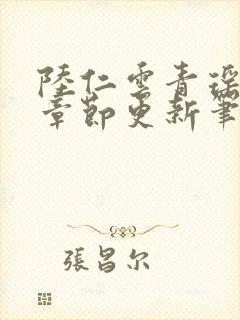 陸仁雲青瑤
章節更新筆
張昌尔